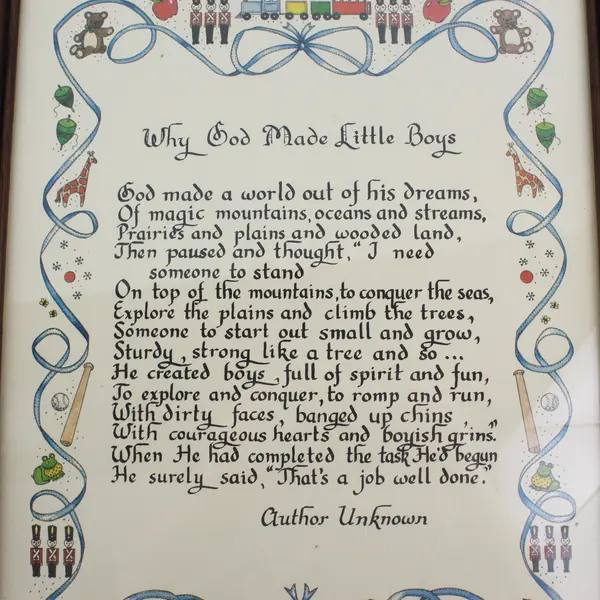 Why God Made Little Boys
God made a world out of his dreams,
Of magic mountains, oceans and streams,
Prairies and plains and wooded land,
Then paused and thought, "I need
someone to stand
On top of the mountains, to conquer the seas,
Explore the plains and climb the trees,
Someone to start out small and grow,
Sturdy, strong like a tree and so ...
He created boys, full of spirit and fun,
To explore and conquer, to romp and run,
With dirty faces, banged up chins,
With courageous hearts and boyish grins."
When He had completed the task He'd begun
He surely said, "That's a job well done."
Author Unknown